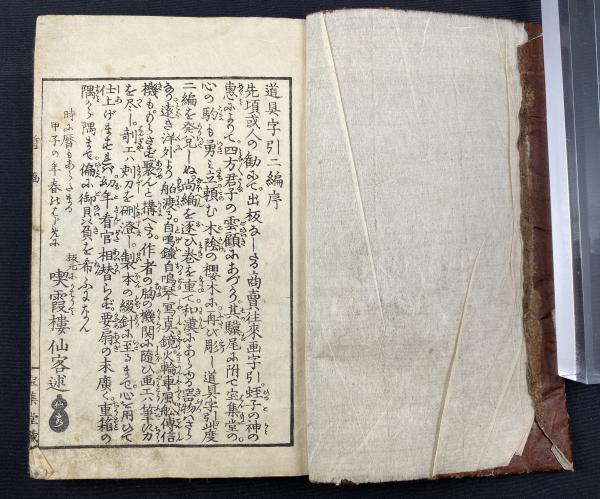 道具字引二編序
先頃或人の勧めにて出板なしたる商賣往来画字引蛭子の神の
恵みによりて四方君子の雲顧にあづかり其驥尾に附て宝集堂の
心の駒も勇み立頼む木陰の櫻木に再び彫し道具字引此度
二編を発兌しぬ尚編を逐ひ巻を重て和漢にあらゆる器物ハさら
なり遠き洋外より舶渡る自鳴鐘自鳴琴写真鏡火輪車風船傳信
機ももらさず聚んと構へたる作者の胸の機関に随ひ画工ハ筆の力
を尽し剞工ハ刺刀を研澄し製本の綴針に至るまで心を用ひて
仕上げますれバ年々看官相替らず要扇の末廣く重箱の
隅から隅まで偏に御目を希ふになん
時に暦もあらたまる
甲子の年春のはじめに
板元にかはりて
喫霞樓仙客述
宝集堂蔵